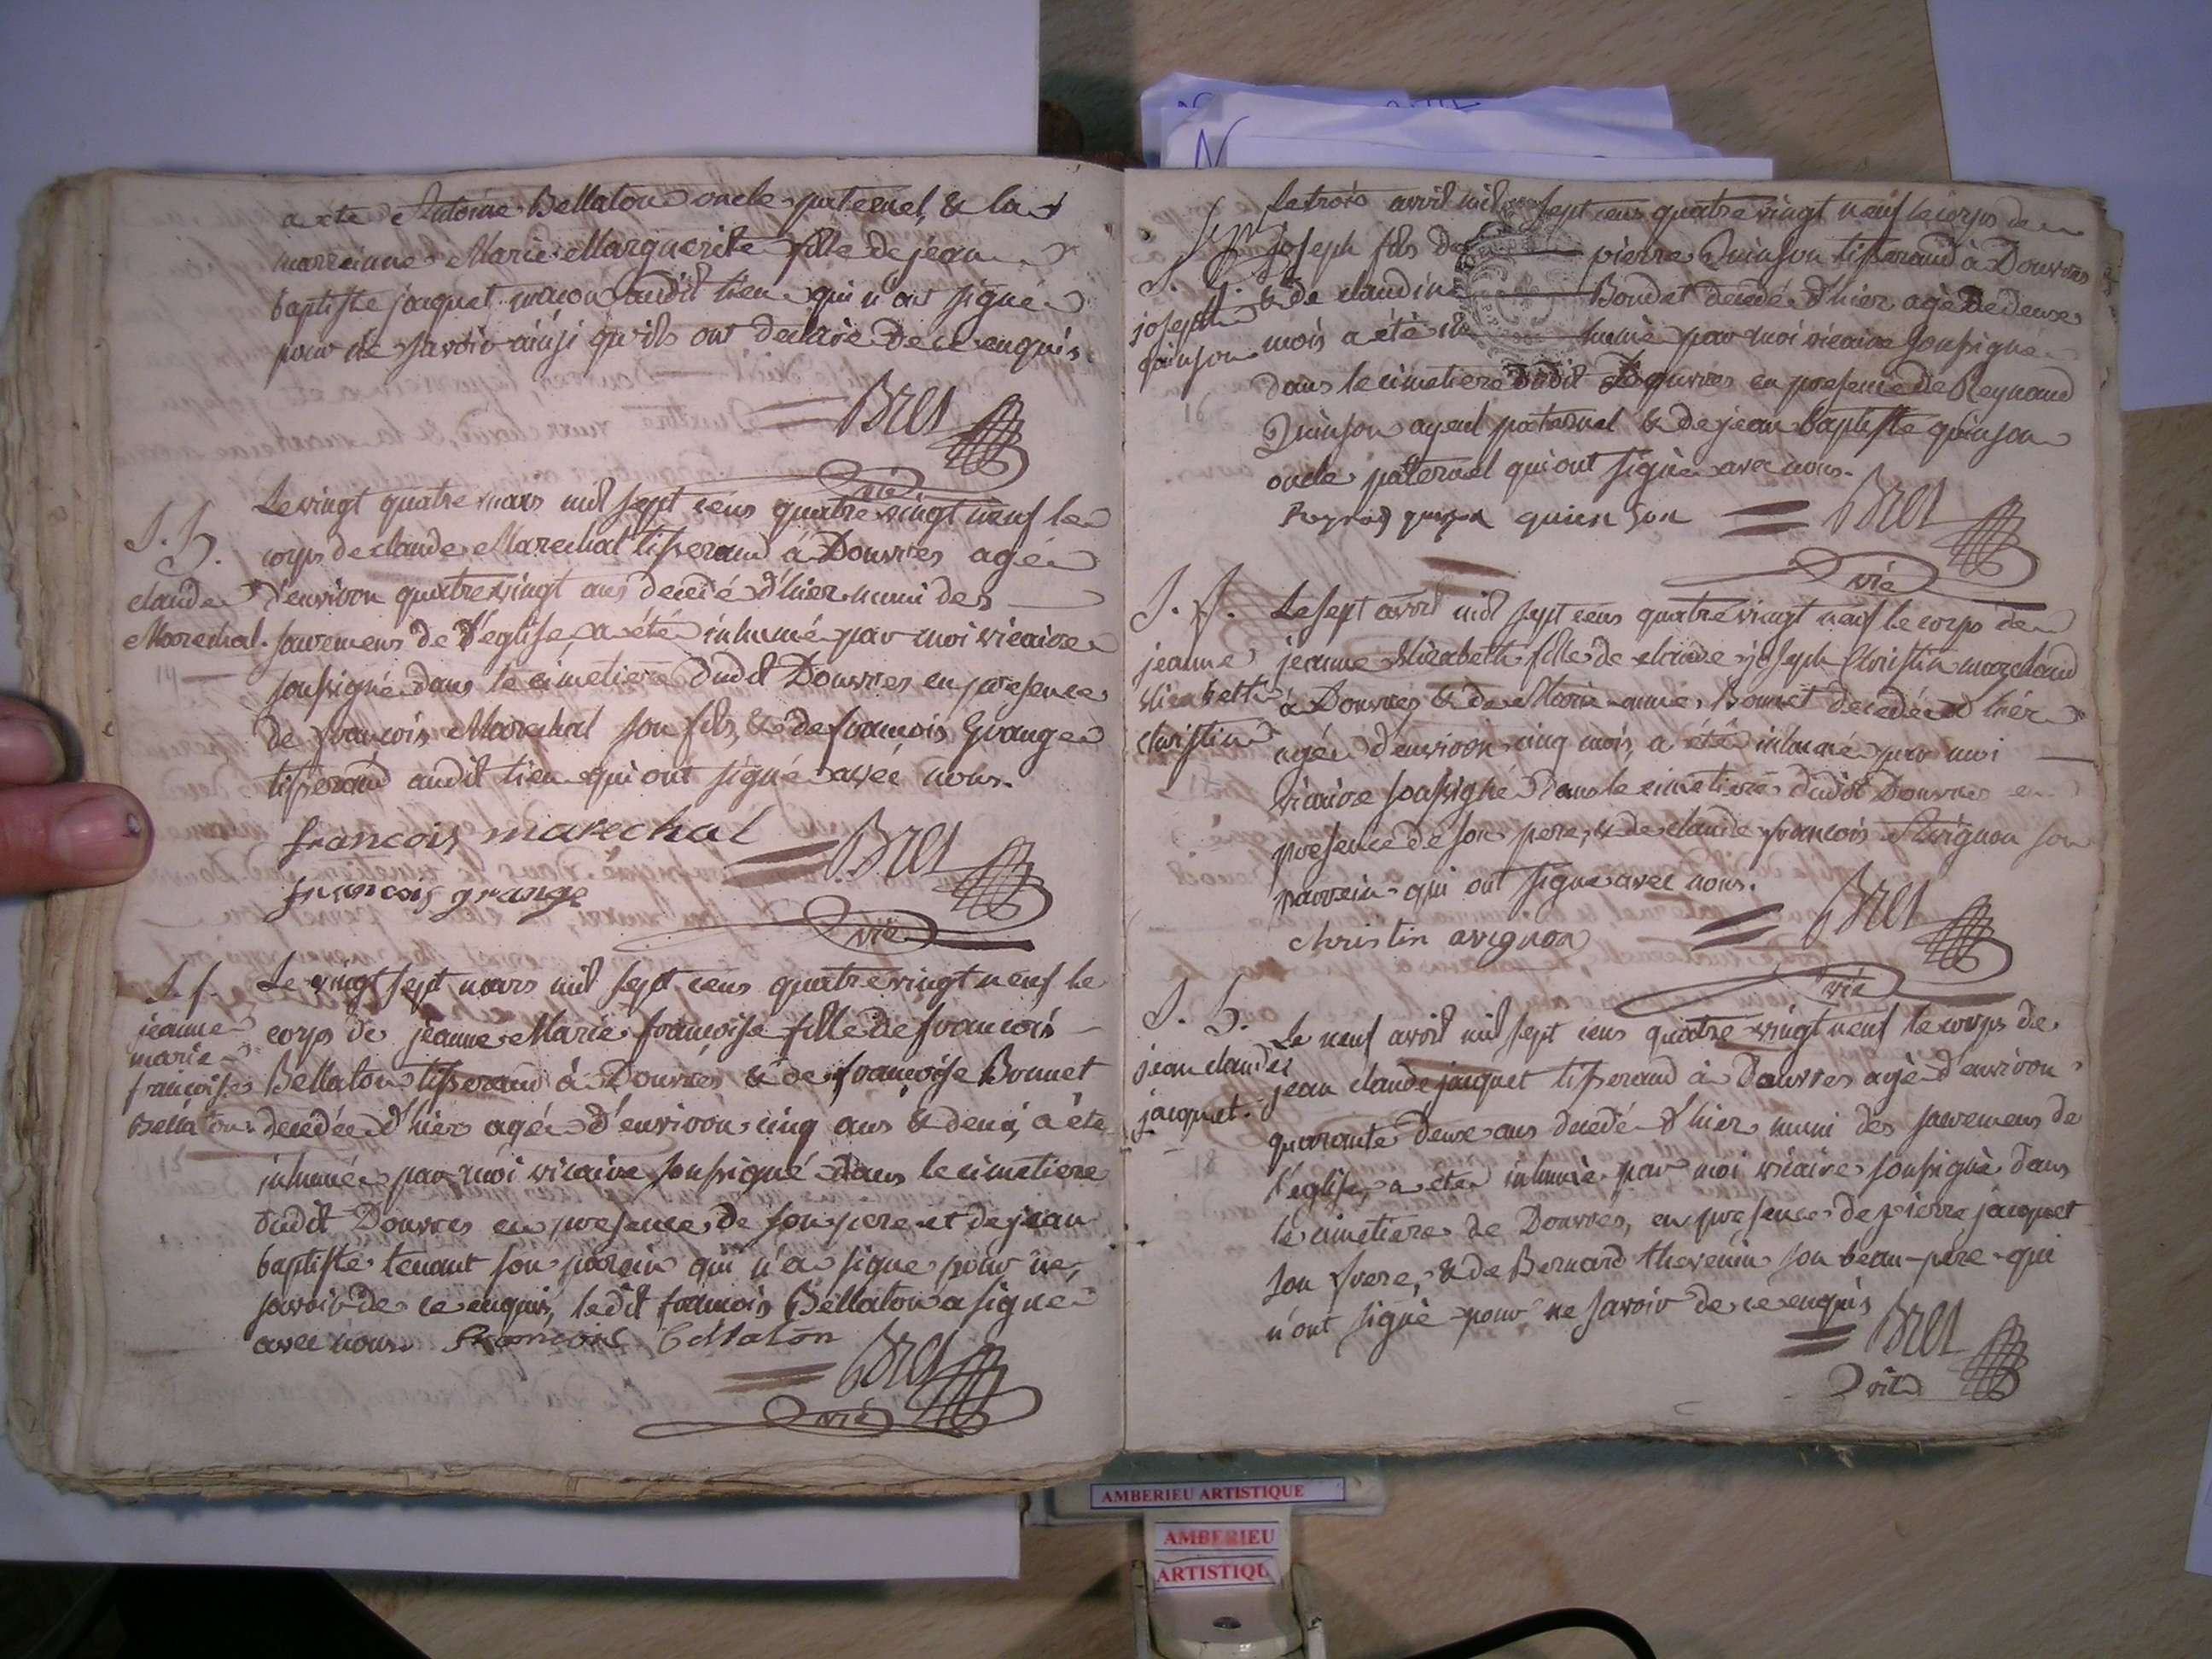 a ete Antoine Bellaton oncle paternel, & la
marrainne Marie Marguerite fille de jean
baptiste jacquet maçon audit lieu qui n'ont signé
pour ne savoir ainsi qu'ils ont declaré de ce enquis.
Bret
vic
S. S.
claude
Marechal.
14
Le vingt quatre mars mil sept cens quatre vingt neuf le
corps de claude Marechal tisserand à Douvres agé
d'environ quatre vingt ans decedé d'hier muni des
sacremens de l'eglise, a été inhumé par moi vicaire
soussigné dans le cimetiere dudit Douvres en presence
de françois Marechal son fils, & de francois Grange
tisserand audit lieu qui ont signé avec nous.
francois marechal
francois grange
Bret
vic
S. S.
jeanne
marie
françoise
Bellaton
15
Le vingt sept mars mil sept cens quatre vingt neuf le
corps de jeanne Marie francoise fille de francois
Bellaton tisserand à Douvres & de françoise Bonnet
decedée d'hier agée d'environ cinq ans & demi, a été
inhumée par moi vicaire soussigné dans le cimetiere
dudit Douvres en presence de son pere et de jean
baptiste tenant son parain qui n'a signe pour ne
savoir de ce enquis, ledit francois Bellaton a signé
avec nous. francois bellaton
Bret
vic
S. S.
joseph
quinson
16
Le trois avril mil sept cens quatre vingt neuf le corps de
joseph fils de pierre Quinson tisserand à Douvres
& de claudine Boudet decedé d'hier agé de deux
mois a été inhumé par moi vicaire soussigné
dans le cimetiere dudit Douvres en presence de Reynaud
Quinson ayeul paternel & de jean baptiste quinson
oncle paternel qui ont signé avec nous.
quinson
Bret
vic
S. S.
jeanne
Elizabeth
christin
Le sept avril mil sept cens quatre vingt neuf le corps de
jeanne Elizabeth fille de claude joseph Christin marchand
à Douvres & de Marie anne Bonnet decedée d'hier
agée d'environ cinq mois, a été inhumé par moi
vicaire soussigné dans le cimetiere dudit Douvres en
presence de son pere, & de claude françois Avignon son
parrein qui ont signé avec nous.
christin avignon
Bret
vic
S. S.
jean claude
jacquet.
18
Le neuf avril mil sept cens quatre vingt neuf le corps de
jean claude jacquet tisserand à Douvres agé d'environ
quarante deux ans decedé d'hier muni des sacremens de
l'eglise, a été inhumé par moi vicaire soussigné dans
le cimetiere de Douvres, en presence de pierre jacquet
son frere, & de Bernard thevenin son beau-pere qui
n'ont signé pour ne savoir de ce enquis
Bret
vic
AMBERIEU ARTISTIQUE
AMBERIEU
ARTISTIQU